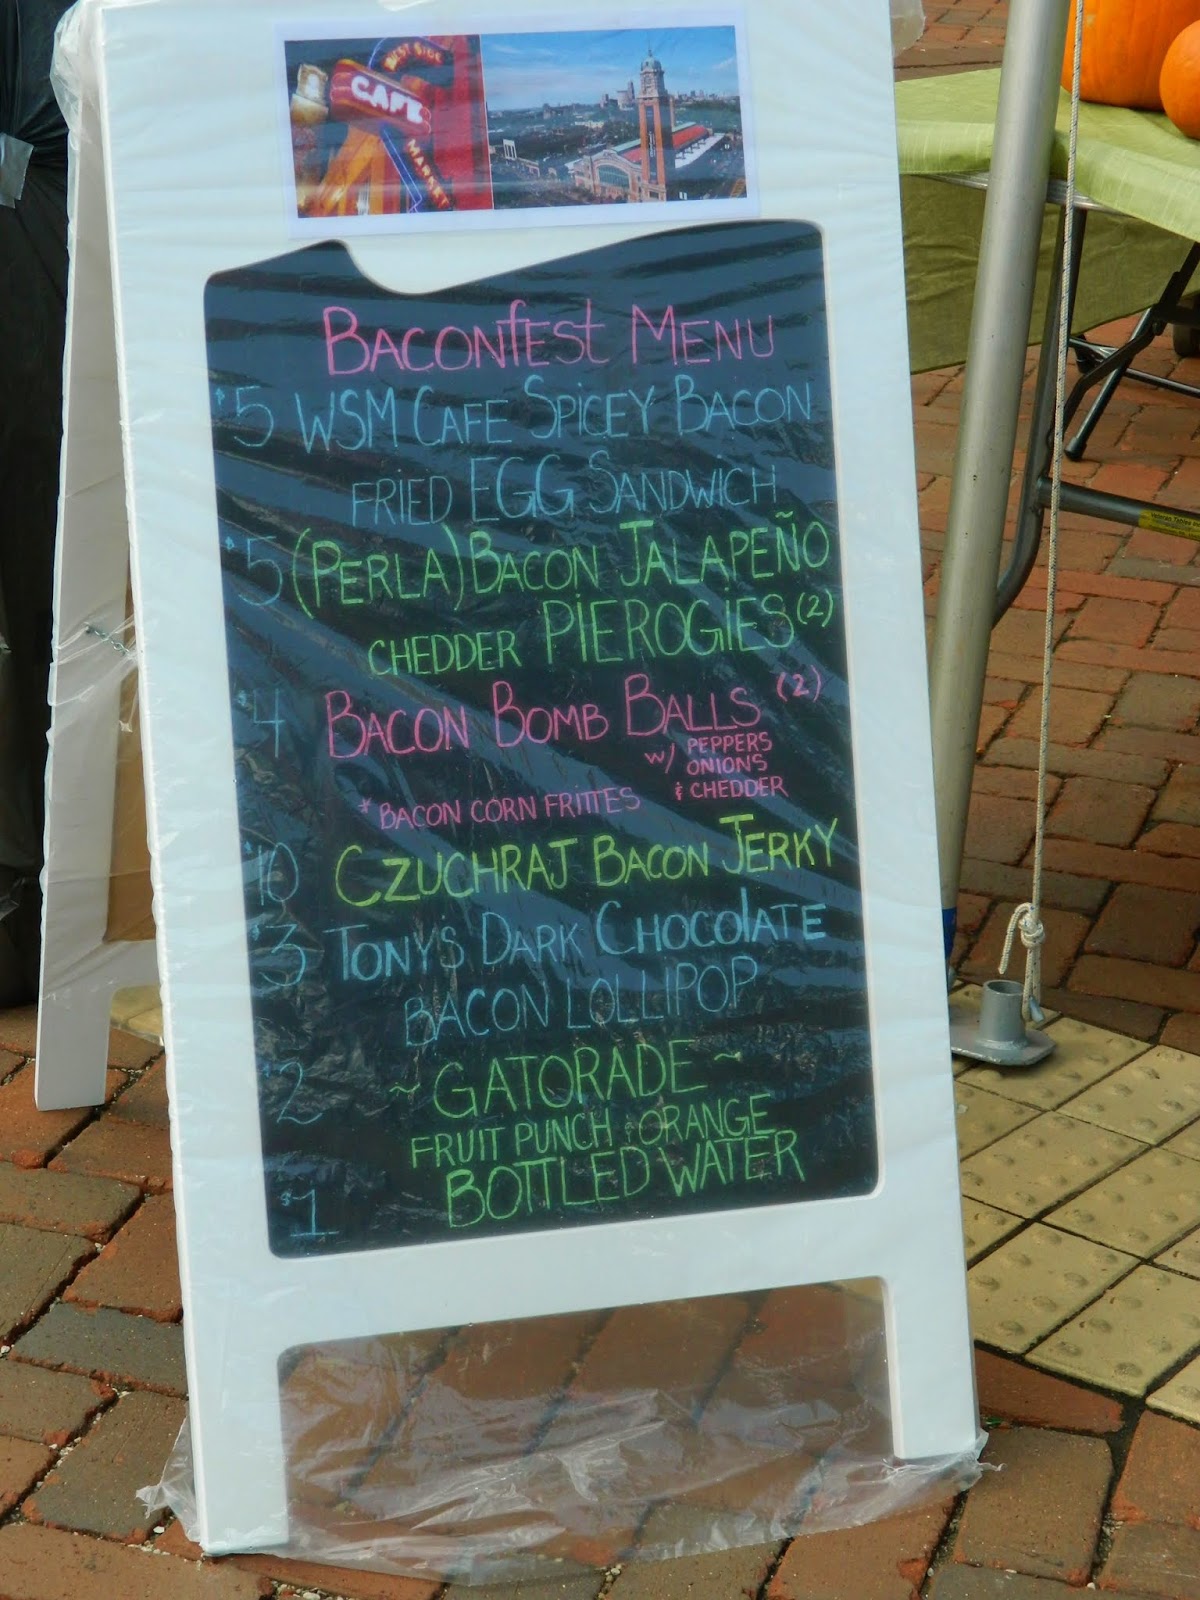 WEST SIDE
CAFE
MARKET
BACONfEST MENU
$5 WSM CAFE SPICEY BACON
FRIED EGG SANDWICH
$5 (PERLA) BACON JALAPEÑO
CHEDDER PIEROGIES (2)
$4 BACON BOMB BALLS (2)
w/ PEPPERS
ONIONS
& CHEDDER
* BACON CORN FRITTES
$10 CZUCHRAJ BACON JERKY
$3 TONY'S DARK CHOCOlATE
BACON LOLLIPOP
$2 ~ GATORADE ~
FRUIT PUNCH . ORANGE
$1 BOTTLED WATER